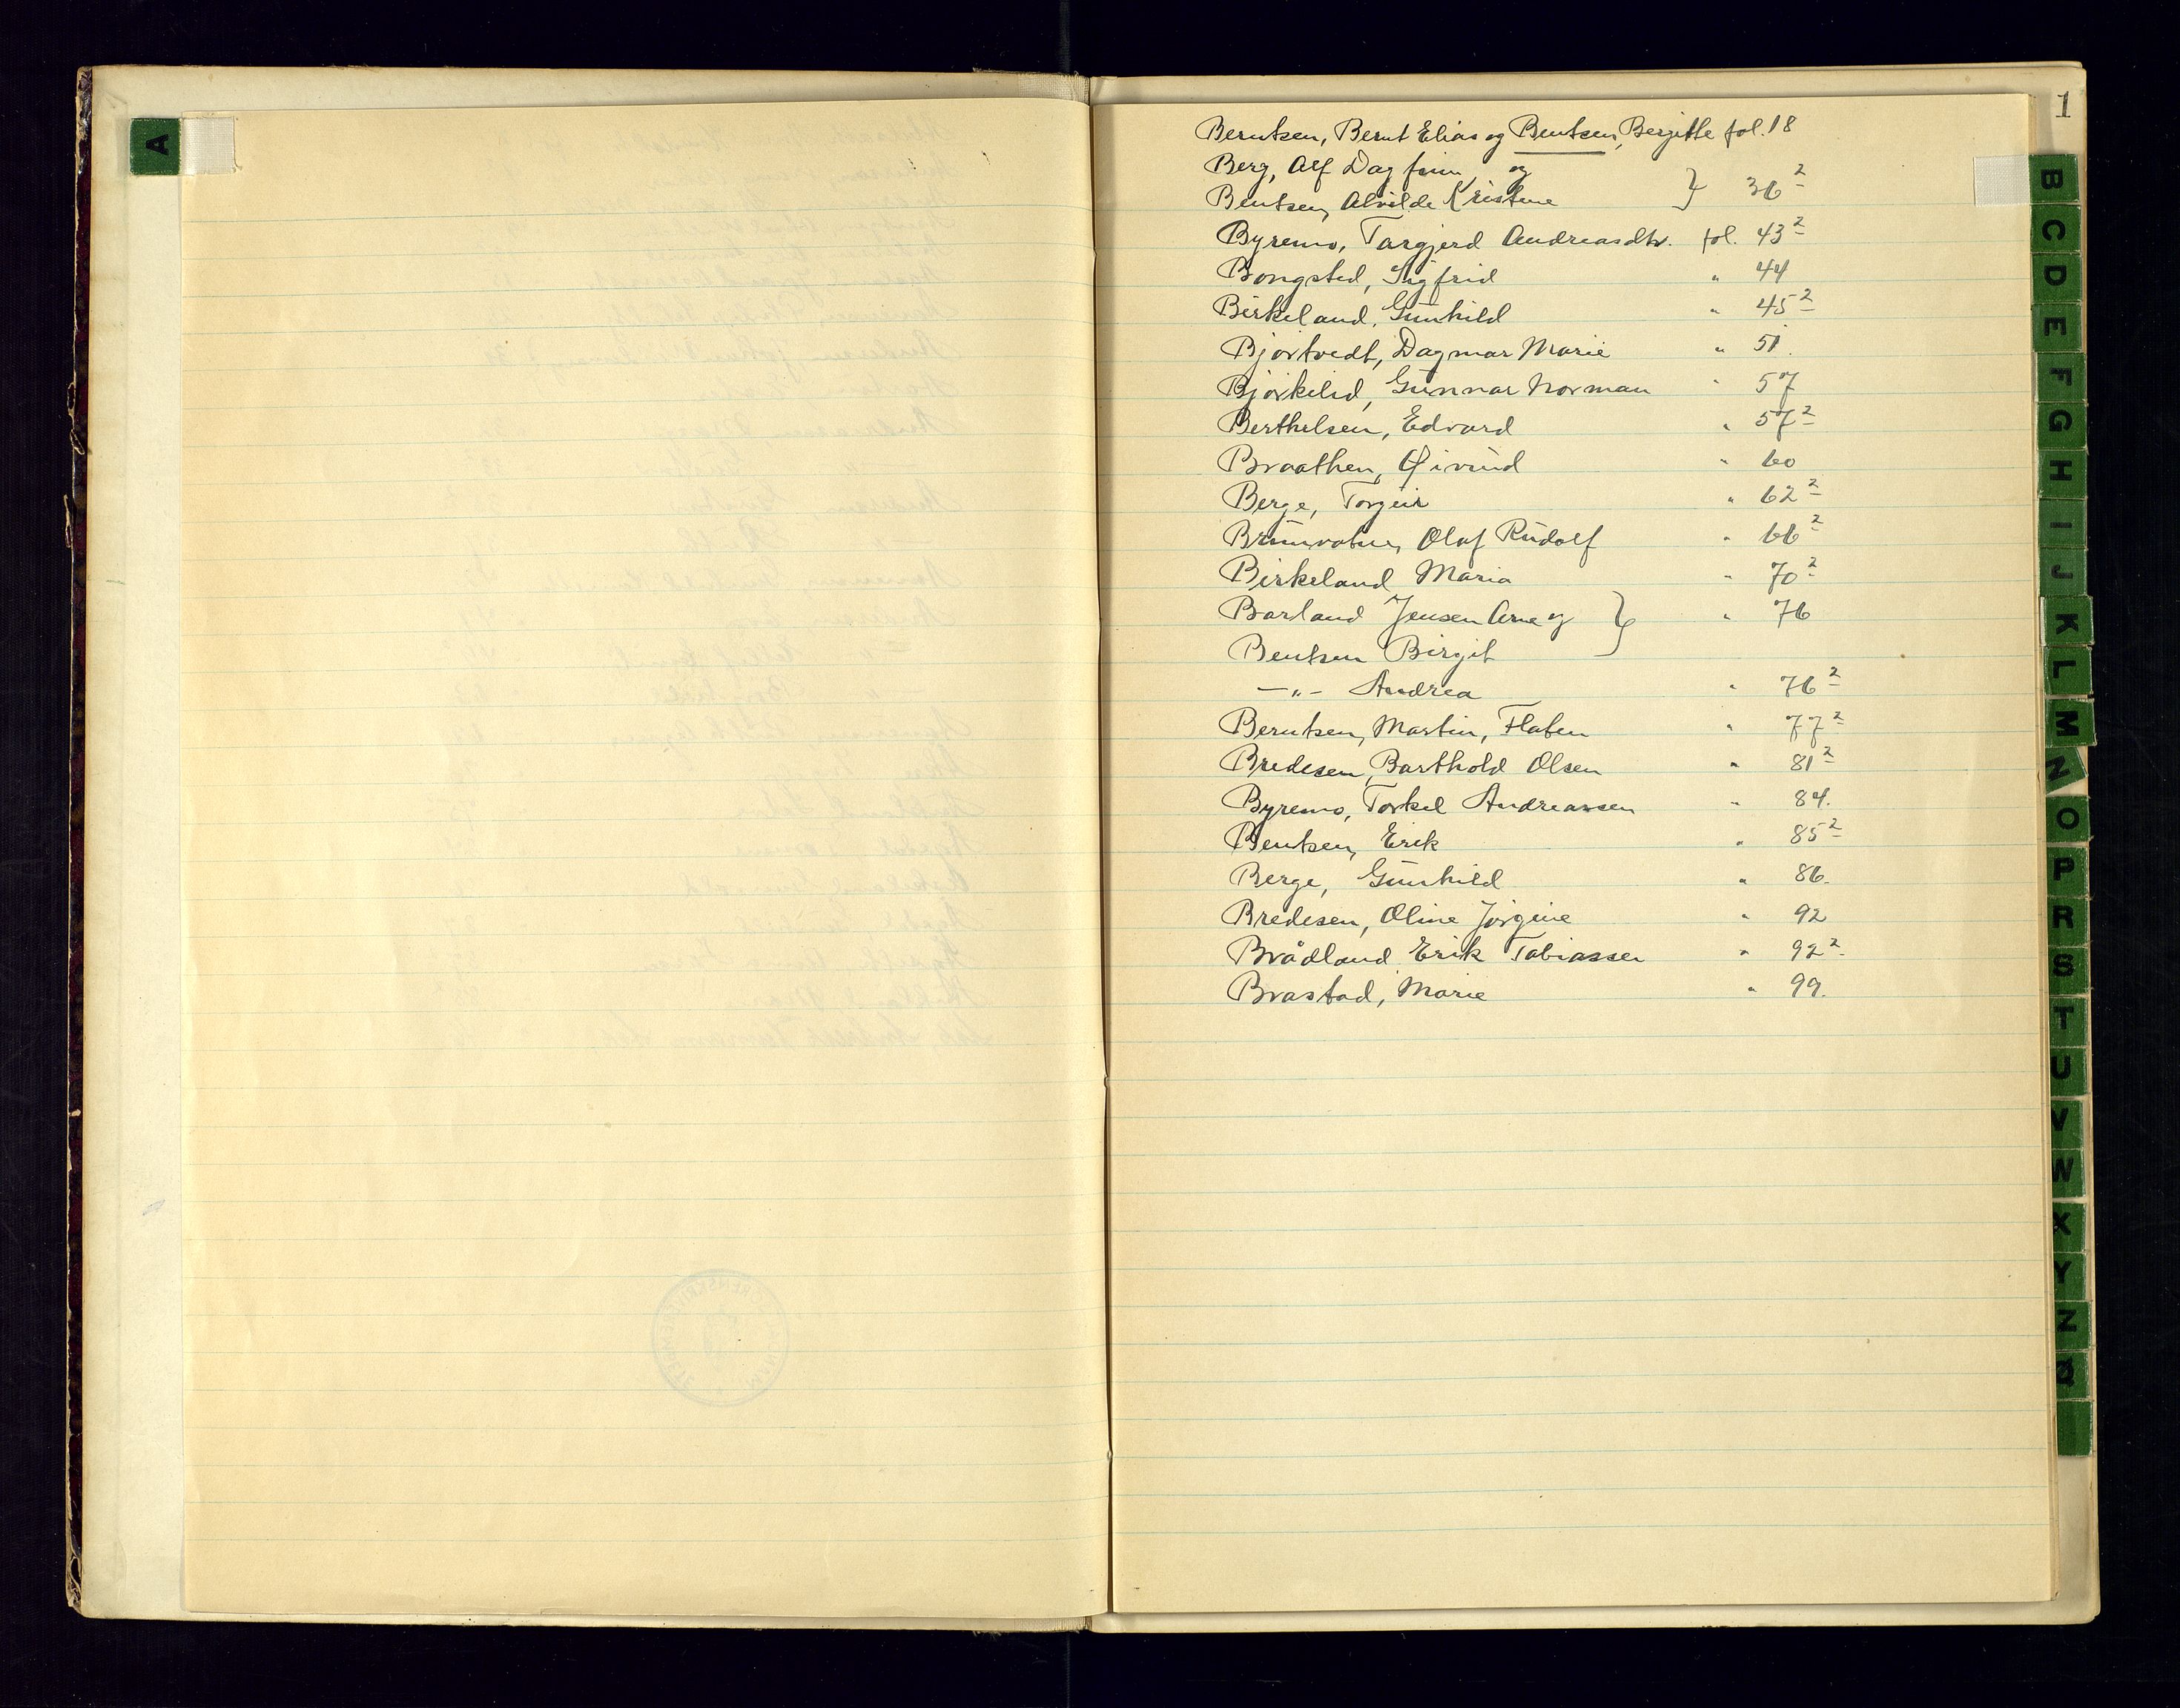 A
1
Berntsen, Bernt Elias og Bentsen, Bergitte fol. 18
Berg, Alf Dagfinn, og
Bentsen, Alvilde Kristine } 36²
Byremo, Targjerd Andreasdtr. fol. 43²
Bongsted, Sigfrid " 44
Birkeland, Gunhild " 45²
Bjortvedt, Dagmar Marie " 51.
Bjorkelid, Gunnar Norman " 57
Berthelsen, Edvard " 57²
Braathen, Øivind " 60
Berge, Torgeir " 62²
Brunvatne, Olaf Rudolf " 66²
Birkeland, Maria " 70²
Barland Jensen Arne og } " 76
Bentsen Birgit
—"— Andrea " 76²
Berntsen, Martin, Flaten " 77²
Bredesen, Barthold Olsen " 81²
Byremo, Torkel Andreassen " 84.
Bentsen, Erik " 85²
Berge, Gunhild " 86.
Bredesen, Oline Jørgine " 92
Brådland Erik Tobiassen " 92².
Brastad, Marie " 99.
B
C
D
E
F
G
H
I
J
K
L
M
N
O
P
R
S
T
U
V
W
X
Y
Z
Ø